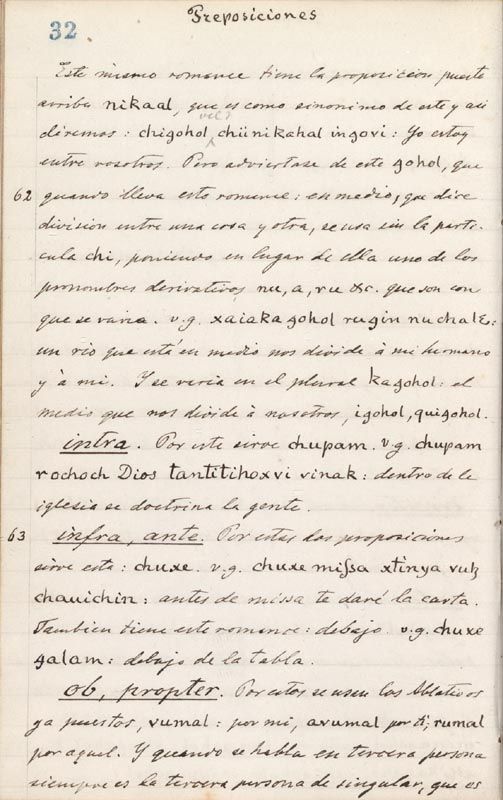 Preposiciones
32
Este mismo romance tiene la proposicion puesta
arriba nikaal, que es como sinonimo de este y asi
diremos: chigohol, vel? chiinikahal ingovi: Yo estoy
entre vosotros. Pero adviertase de este gohol, que
62 quando lleva esto romance: en medio, que dice
division entre una cosa y otra, se usa sin la parti-
cula chi, poniendo en lugar de ella uno de los
pronombres derivativos, nu, a, ru &c. que son con
que se varia. v.g. xaiakagohol rugin nuchal
un rio que está en medio nos divide à mi hermano
y à mi. Y se varia en el plural kagohol: el
medio que nos divide à nosotros, igohol, quigohol.
intra. Por este sirve chupam. v.g. chupam
rochoch Dios tantitihoxvi vinak: dentro de le
iglesia se doctrina la gente.
63 infra, ante. Por estas dos proposiciones
sirve esta: chuxe. v.g. chuxe missa xtinya vuh
chauichin: antes de missa te daré la carta.
Tambien tiene este romance: debajo. v.g. chuxe
galam: debajo de la tabla.
ob, propter. Por estos se usan los Ablativos
ya puestos, vumal: por mi, avumal por ti; rumal
por aquel. Y quando se habla en tercera persona
siempre es la tercera persona de singular, que es